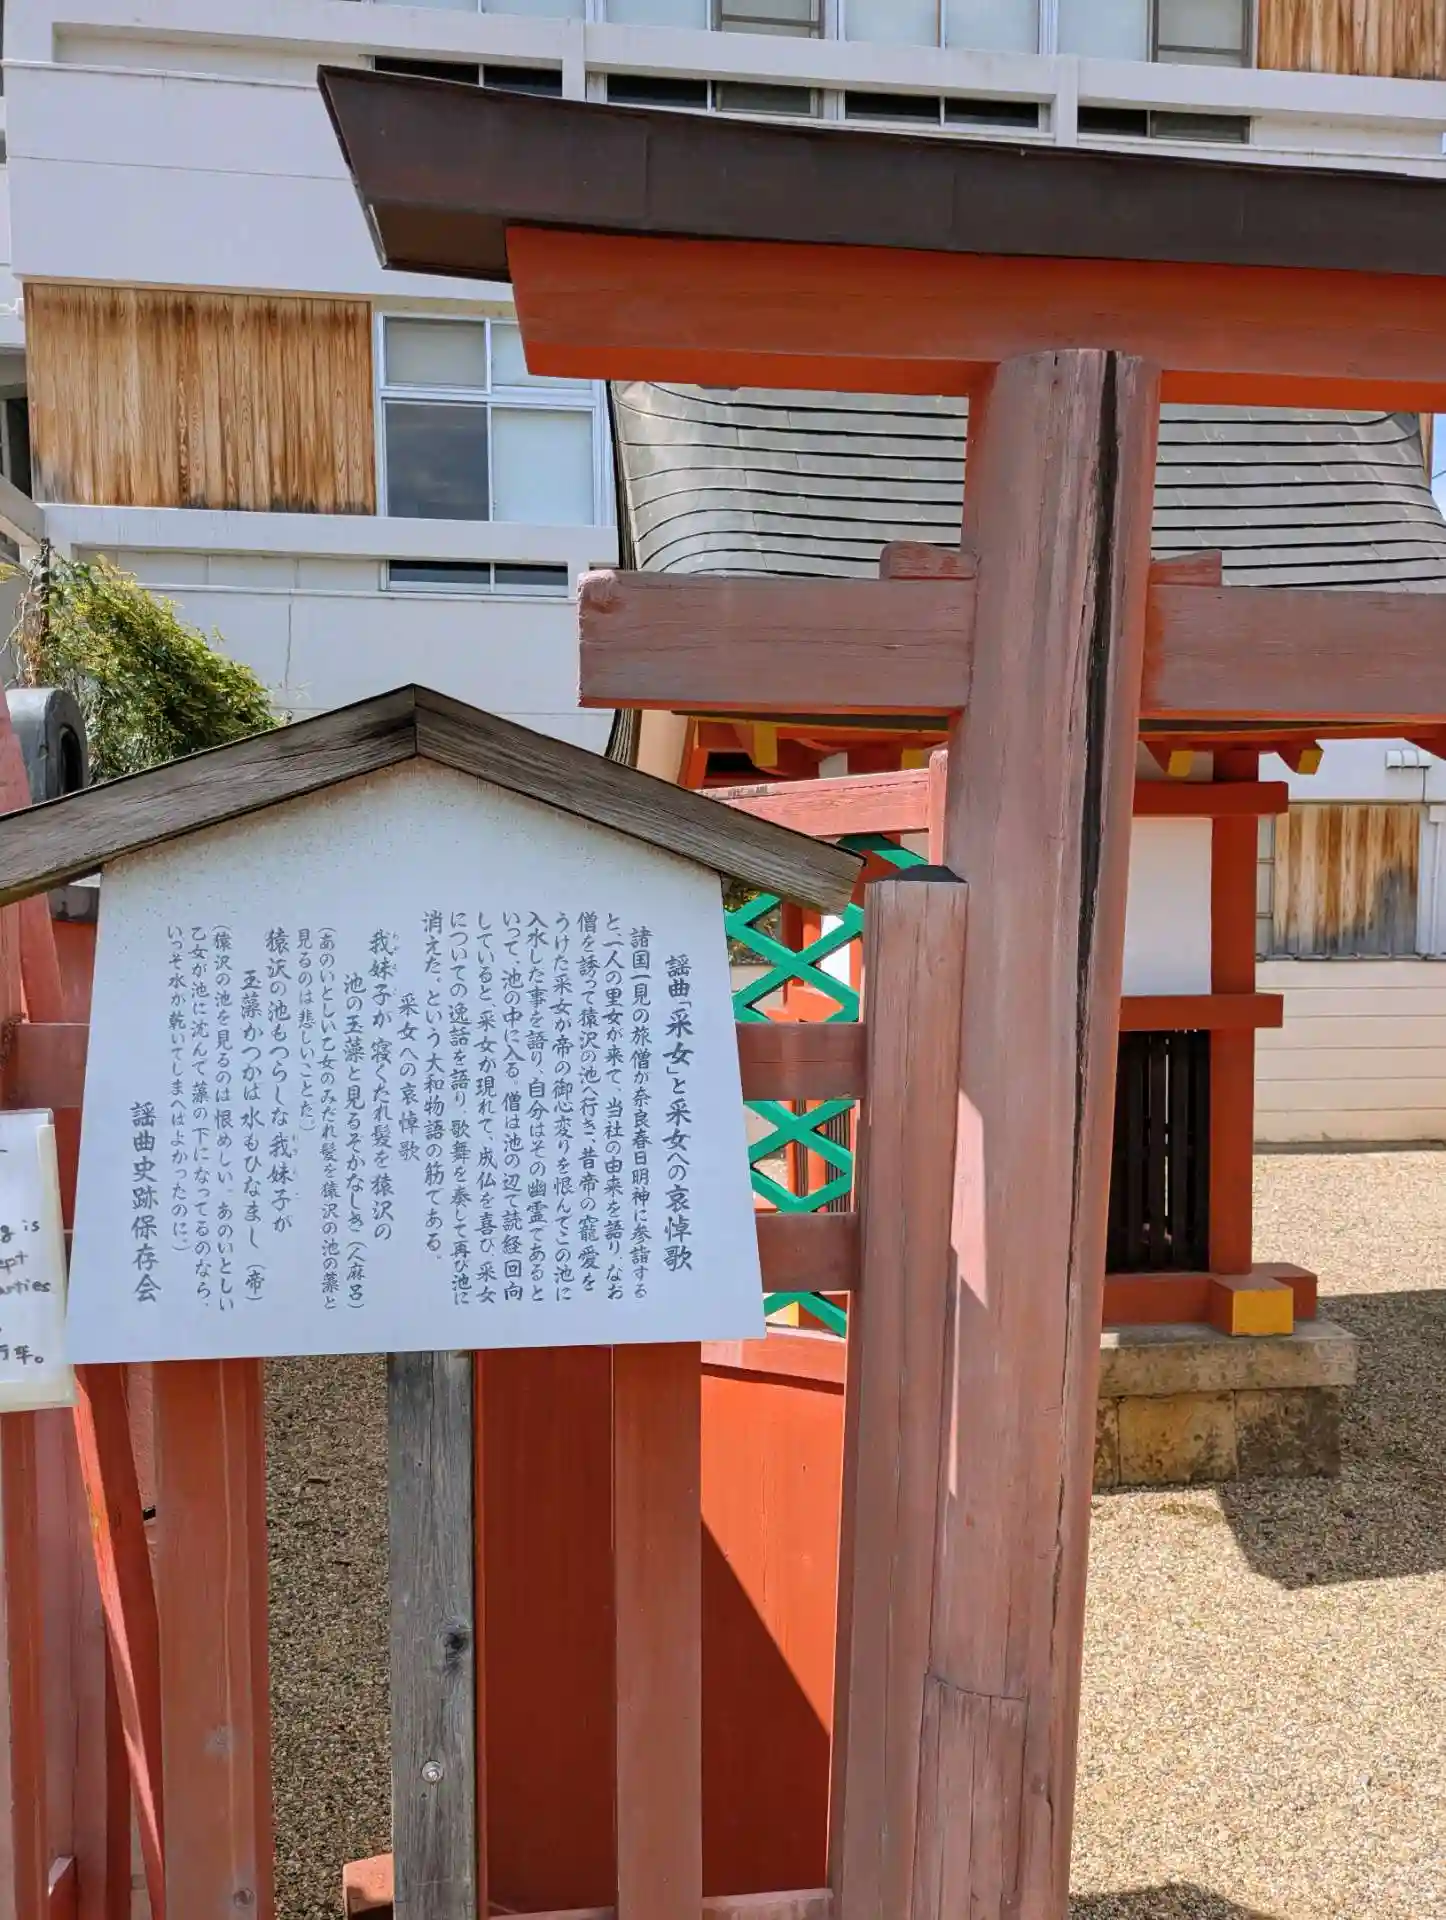 謡曲「采女」と采女への哀悼歌
諸国一見の旅僧が奈良春日明神に参詣する
と、一人の里女が来て、当社の由来を語り、なお
僧を誘って猿沢の池へ行き、昔帝の寵愛を
うけた采女が帝の御心変りを恨んでこの池に
入水した事を語り、自分はその幽霊であると
いって、池の中に入る。僧は池の辺で読経回向
していると、采女が現れて、成仏を喜び、采女
についての逸話を語り、歌舞を奏して再び池に
消えた。という大和物語の筋である。
采女への哀悼歌
我妹子が寝くたれ髪を猿沢の
池の玉藻と見るぞかなしき（人麻呂）
（あのいとしい乙女のみだれ髪を猿沢の池の藻と
見るのは悲しいことだ。）
猿沢の池もつらしな我妹子が
玉藻かつかば水もひなまし（帝）
（猿沢の池を見るのは恨めしい。あのいとしい
乙女が池に沈んで藻の下になってるのなら、
いっそ水が乾いてしまへばよかったのに。）
謡曲史跡保存会
is